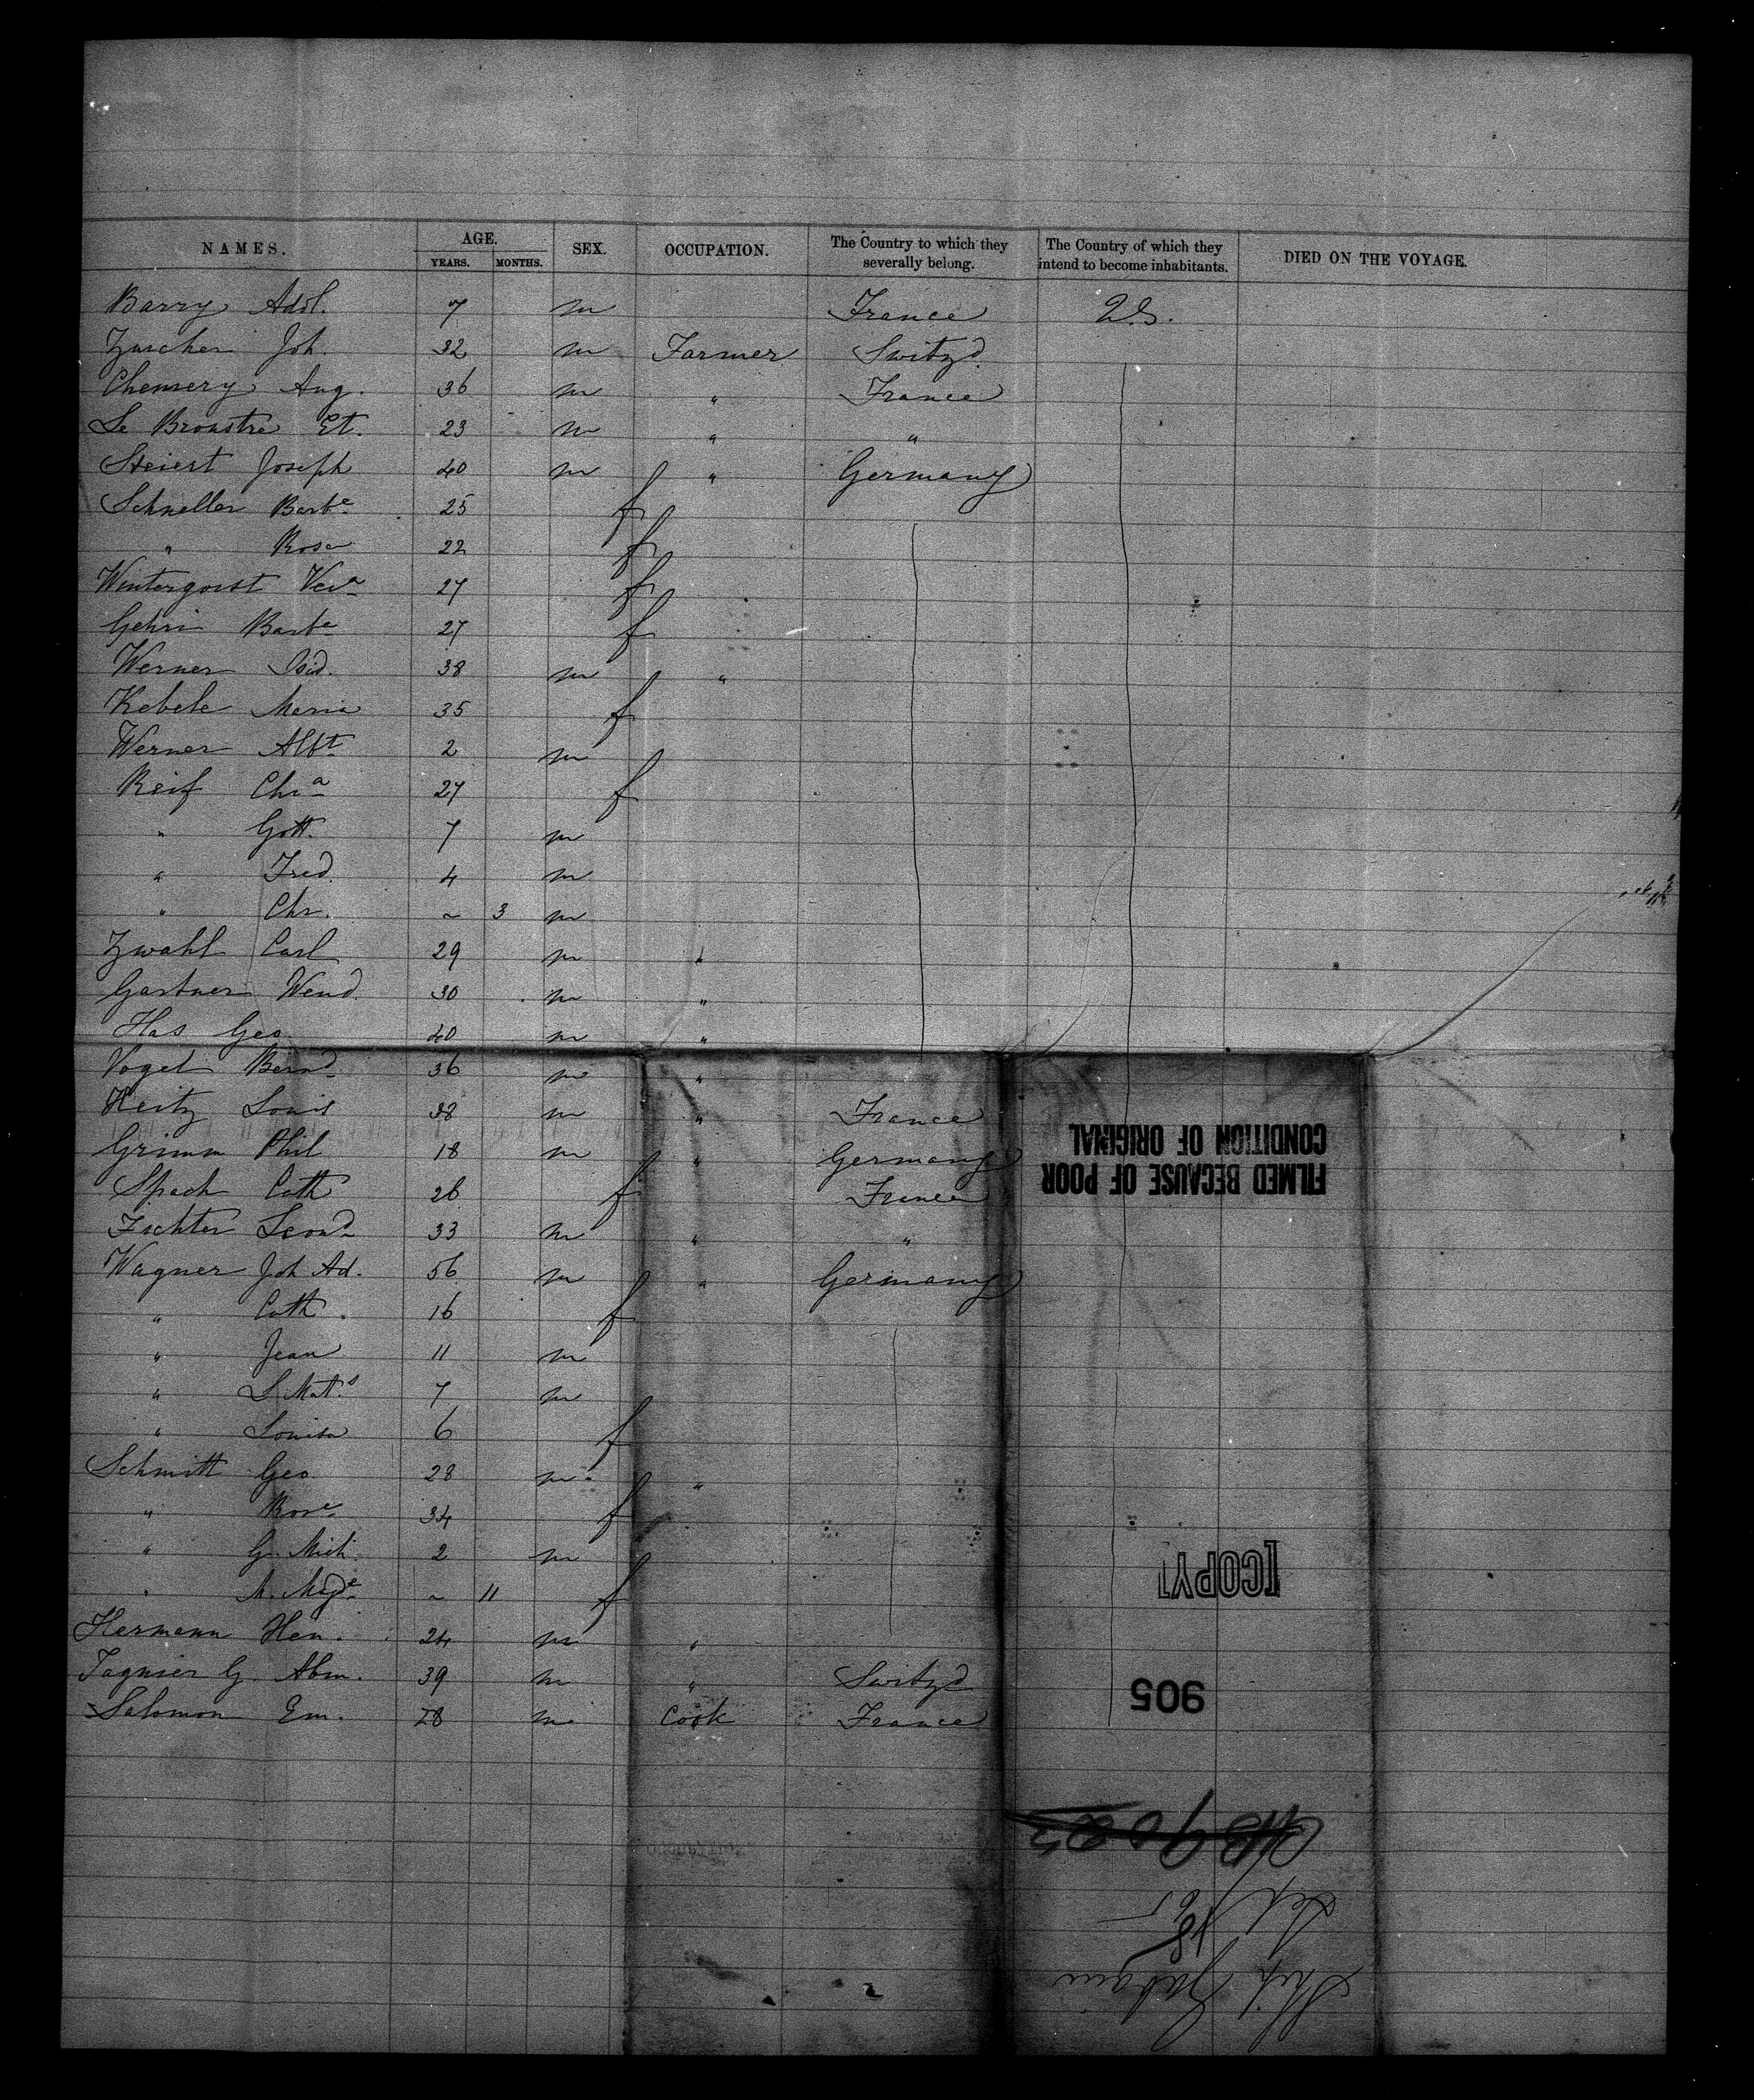 NAMES. AGE. SEX. OCCUPATION. The Country to which they severally belong. The Country of which they intend to become inhabitants. DIED ON THE VOYAGE.
YEARS. MONTHS.
Barry Adol. 7 m France U.S.
Zurcher Joh. 32 m Farmer Switzd
Chemery Aug. 36 m " France
Le Broustre Et. 23 m " "
Steiert Joseph 40 m " Germany
Schneller Barbe 25 f
" Rosa 22 f
Wintergorst Vera 27 f
Gehri Barbe 27 f
Werner Isid. 38 m "
Kebele Maria 35 f
Werner Albt 2 m
Reif Chra 27 f
" Gott. 7 m
" Fred. 4 m
" Chr. ~ 3 m
Zwahl Carl 29 m "
Gartner Wend. 30 m "
Has Geo. 40 m "
Vogel Bernd 36 m "
Keitz Louis 38 m " France
Grimm Phil 18 m " Germany
Spach Cath 26 f France
Fichter Leond 33 m " "
Wagner Joh Ad. 56 m " Germany
" Cath. 16 f
" Jean 11 m
" L. Mats 7 m
" Louisa 6 f
Schmitt Geo. 28 m "
" Rose 34 f
" G. Mich. 2 m
" M. Magde ~ 11 f
Hermann Hen. 24 m "
Tagnier G. Abm. 39 m " Switzd
Salomon Em. 28 m Cook France
FILMED BECAUSE OF POOR
CONDITION OF ORIGINAL
[COPY]
905
Ship
Sep 18
65